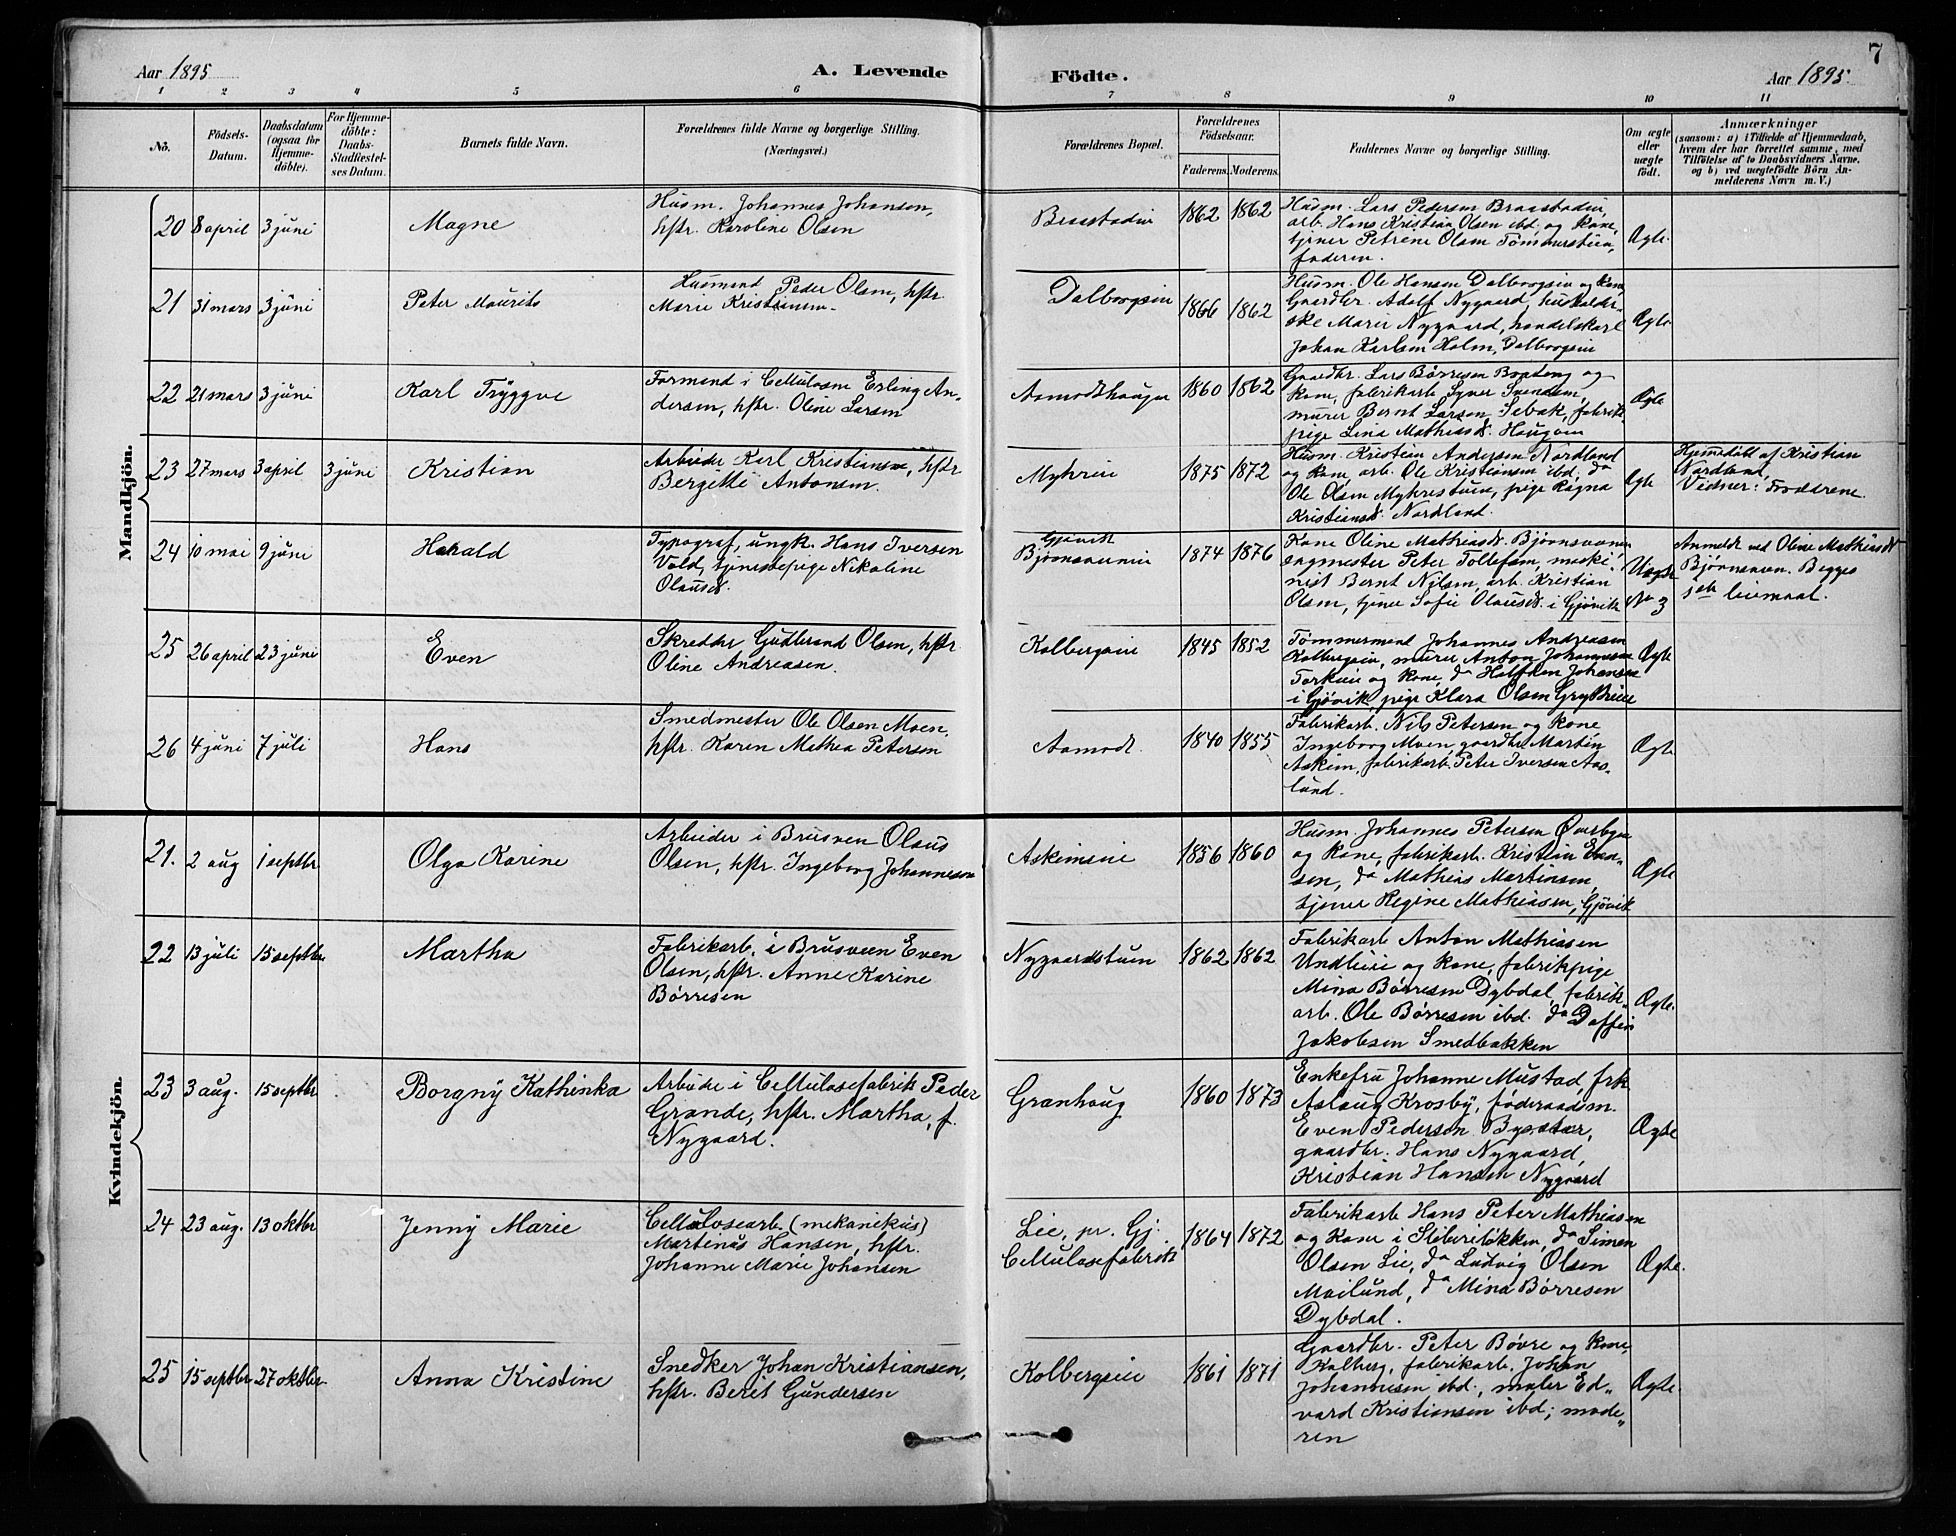 7
Aar 1895
A. Levende
Födte.
Aar 1895
1 2 3 4 5 6 7 8 9 10 11
No.
Födsels-
Datum.
Daabsdatum
(ogsaa for
Hjemme-
döbte).
For Hjemme-
döbte:
Daabs-
Stadfæstel-
ses Datum.
Barnets fulde Navn.
Forældrenes fulde Navne og borgerlige Stilling.
(Næringsvei.)
Forældrenes Bopæl.
Forældrenes
Födselsaar.
Faderens. Moderens.
Faddernes Navne og borgerlige Stilling.
Om ægte
eller
uægte
födt.
Anmærkninger
(saasom: a) i Tilfælde af Hjemmedaab,
hvem der har forrettet samme, med
Tilföielse af to Daabsvidners Navne.
og b) ved uægtefödte Börn An-
melderens Navn m. V.)
Mandkjön.
20 8 april 3 juni
Magne
Husm. Johannes Johansen,
hstr. Karoline Olsen
Braastadeie
1862 1862
Husm. Lars Pedersen Braastadeie,
arb. Hans Kristian Olsen ibd. og kone,
tjener Petrene Olsen Tømmerstuen,
faderen.
Ægte.
21 31 mars 3 juni
Peter Maurits
Husmand Peder Olsen, hstr.
Marie Kristiansen.
Dalborgseie
1866 1862
Husm. Ole Hansen Dalborgseie og kone
Gaardbr. Adolf Nygaard, husholder-
ske Marie Nygaard, handelskarl
Johan Karlsen Holm, Dalborgseie
Ægte
22 21 mars 3 juni
Karl Tryggve
Formand i Cellulosen Erling An-
dersen, hstr. Oline Larsen
Aamodthaugen
1860 1862
Gaardbr. Lars Børresen Bratberg og
kone, fabrikarb. Syver Svendsen,
murer Bernt Larsen Sebak, fabrik
pige Lina Mathiasd. Haugen
Ægte
23 27 mars 3 april 3 juni
Kristian
Arbeider Karl Kristiansen, hstr
Bergitte Antonsen.
Myhreie
1875 1872
Husm. Kristian Andersen Nordland
og kone, arb. Ole Kristiansen ibd. do
Ole Olsen Myhrestuen, pige Ragna
Kristiansd. Nordland.
Ægte
Hjemmedøbt af Kristian
Nordland,
Vidner: Forældrene.
24 10 mai 9 juni
Harald
Typograf, ungk. Hans Iversen
Vold, tjenestepige Nikoline
Olausd.
Gjøvik
Bjørnsveneie
1874 1876
Kone Oline Mathiasd. Bjørnsvenn
Peter Tollefsen, maski-
nist Bernt Nilsen, arb. Kristian
Olsen, tjener Sofie Olausd. i Gjøvik
Uægte
No 3
Anmeldt ved Oline Mathiasd
Bjørnsveen. Begges
1ste leiermaal.
25 26 april 23 juni
Even
Skredder Gudbrand Olsen, hstr
Oline Andreasen.
Kolbergseie
1845 1852
Tømmermand Johannes Andreasen
Kolbergseie, murer Anton Johannesen
og kone, do Halfdan Johansen
i Gjøvik, pige Klara Olsen
Ægte
26 4 juni 7 juli
Hans
Smedmester Ole Olsen Moen,
hstr. Karen Mathea Petersen
Aamodt.
1840 1855
Fabrikarb. Nils Petersen og kone
Ingeborg Moen, gaardbr Martin
Askim, fabrikarb. Peter Iversen Aas-
lund.
Ægte
Kvindekjön.
21. 2 aug 1 septbr
Olga Karine
Arbeider i Brusven Olaus
Olsen, hstr. Ingeborg Johannesen
Askimseie
1856 1860
Husm. Johannes Petersen
og kone, fabrikarb. Kristian Even-
sen, do Mathias Martinsen
tjener Regine Mathiasen, Gjøvik
Ægte
22 13 juli 15 septbr
Martha
Fabrikarb. i Brusveen Even
Olsen, hstr. Anne Karine
Børresen
Nygaardstuen
1862 1862
Fabrikarb Anton Mathiasen
Undlieie og kone, fabrikpige
Mina Børresen Dybdal, fabrik-
arb. Ole Børresen ibd. do
Jakobsen Smedbakken
Ægte.
23 3 aug. 15 septbr
Borgny Kathinka
Arbeider i Cellulosefabrik Peder
Grande, hstr. Martha, f.
Nygaard.
Granhaug
1860 1873
Enkefru Johanne Mustad, frk
Aslaug Krosby, føderaadsm.
Even Pedersen
gaardbr. Hans Nygaard,
Kristian Hansen Nygaard
Ægte
24 23 aug. 13 oktbr
Jenny Marie
Cellulosearb. (mekanikus)
Martinus Hansen, hstr.
Johanne Marie Johansen
Lie, pr. Gj.
Cellulosefabrik
1864 1872
Fabrikarb Hans Peter Mathiasen
og kone i Sliberiløkken do Simen
Olsen Lie, do Ludvig Olsen
Mailund, do Mina Børresen
Dybdal.
Ægte.
25 15 septbr 27 oktbr.
Anna Kristine
Snedker Johan Kristiansen,
hstr. Berit Gundersen
Kolbergseie
1861 1871
Gaardbr. Peter Bøvre og kone,
Kolberg, fabrikarb. Johan
Johannesen ibd., maler Ed-
vard Kristiansen ibd; mode-
ren
Ægte.